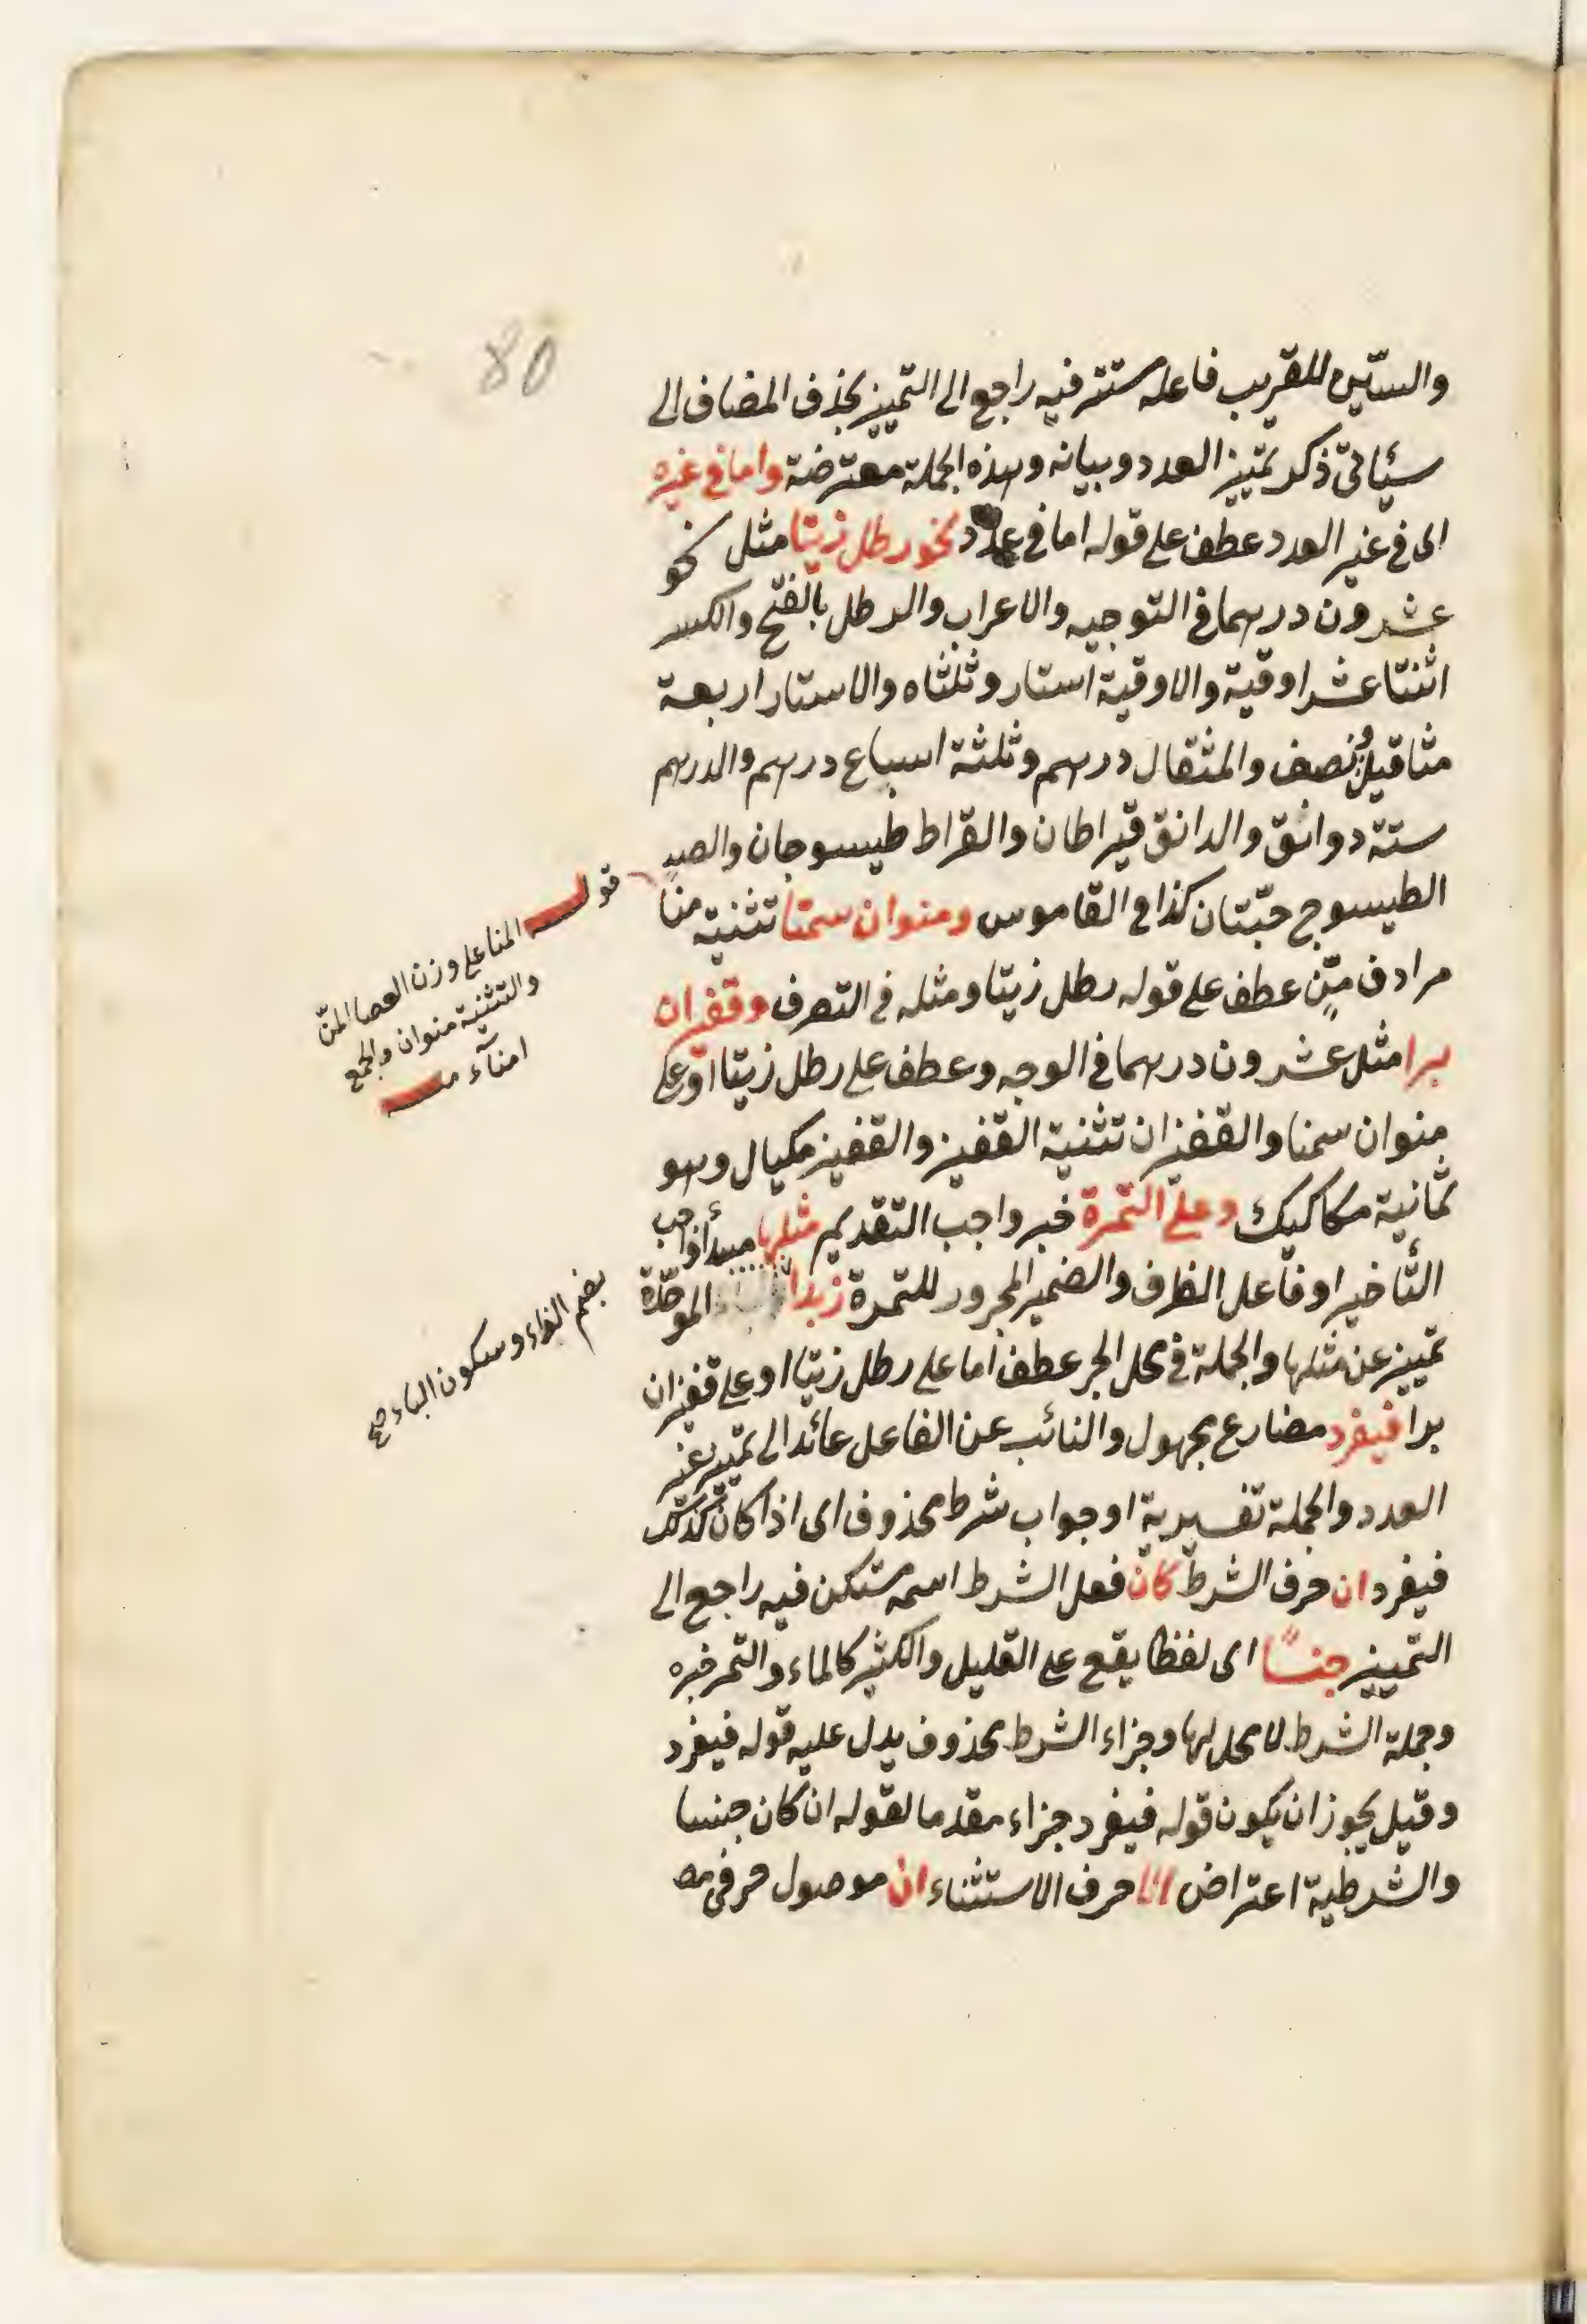 80
والسين للقريب فاعله مستتر فيه راجع الى التمييز بحذف المضاف الى
سيأتى ذكر تمييز العدد وبيانه وهذه الجملة معترضة واما فى غيره
اى فى غير العدد عطف على قوله اما فى عدد نحو رطل زيتا مثل نحو
عشرون درهما فى التوجيه والاعراب والرطل بالفتح والكسر
اثنتا عشر اوقية والاوقية استار وثلثاه والاستار اربعة
مثاقيل ونصف والمثقال درهم وثلثة اسباع درهم والدرهم
ستة دوانق والدانق قيراطان والقراط طيسوجان
الطيسوج حبّتان كذا فى القاموس ومنوان سمنا تثنية منا
مرادف منّ عطف على قوله رطل زيتا ومثله فى التصرف وقفيزان
برا مثل عشرون درهما فى الوجه وعطف على رطل زيتا او على
منوان سمنا والقفيزان تثنية القفيز والقفيز مكيال وهو
ثمانية مكاكيك وعلى التمرة خبر واجب التقديم مثلها مبتدأ واجب
التأخير او فاعل الظرف والضمير المجرور للتمرة زبدا الموحّدة
تمييز عن مثلها والجملة فى محل الجر عطف اما على رطل زيتا او على قفيزان
برا فيفرد مضارع مجهول والنائب عن الفاعل عائد الى تمييز غير
العدد والجملة تفسيرية او جواب شرط محذوف اى اذا كان كذلك
فيفرد ان حرف الشرط كان فعل الشرط اسمه مستكن فيه راجع الى
التمييز جنسًا اى لفظا يقع على القليل والكثير كالماء والتمر خبره
وجملة الشرط لا محل لها وجزاء الشرط محذوف يدل عليه قوله فيفرد
وقيل يجوز ان يكون قوله فيفرد جزاء مقدما لقوله ان كان جنسا
والشرطية اعتراض الا حرف الاستثناء ان موصول حرفى
قوله المنا على وزن العصا المنّ
والتثنية منوان والجمع
امناء
بضم الزاء وسكون الباء صح